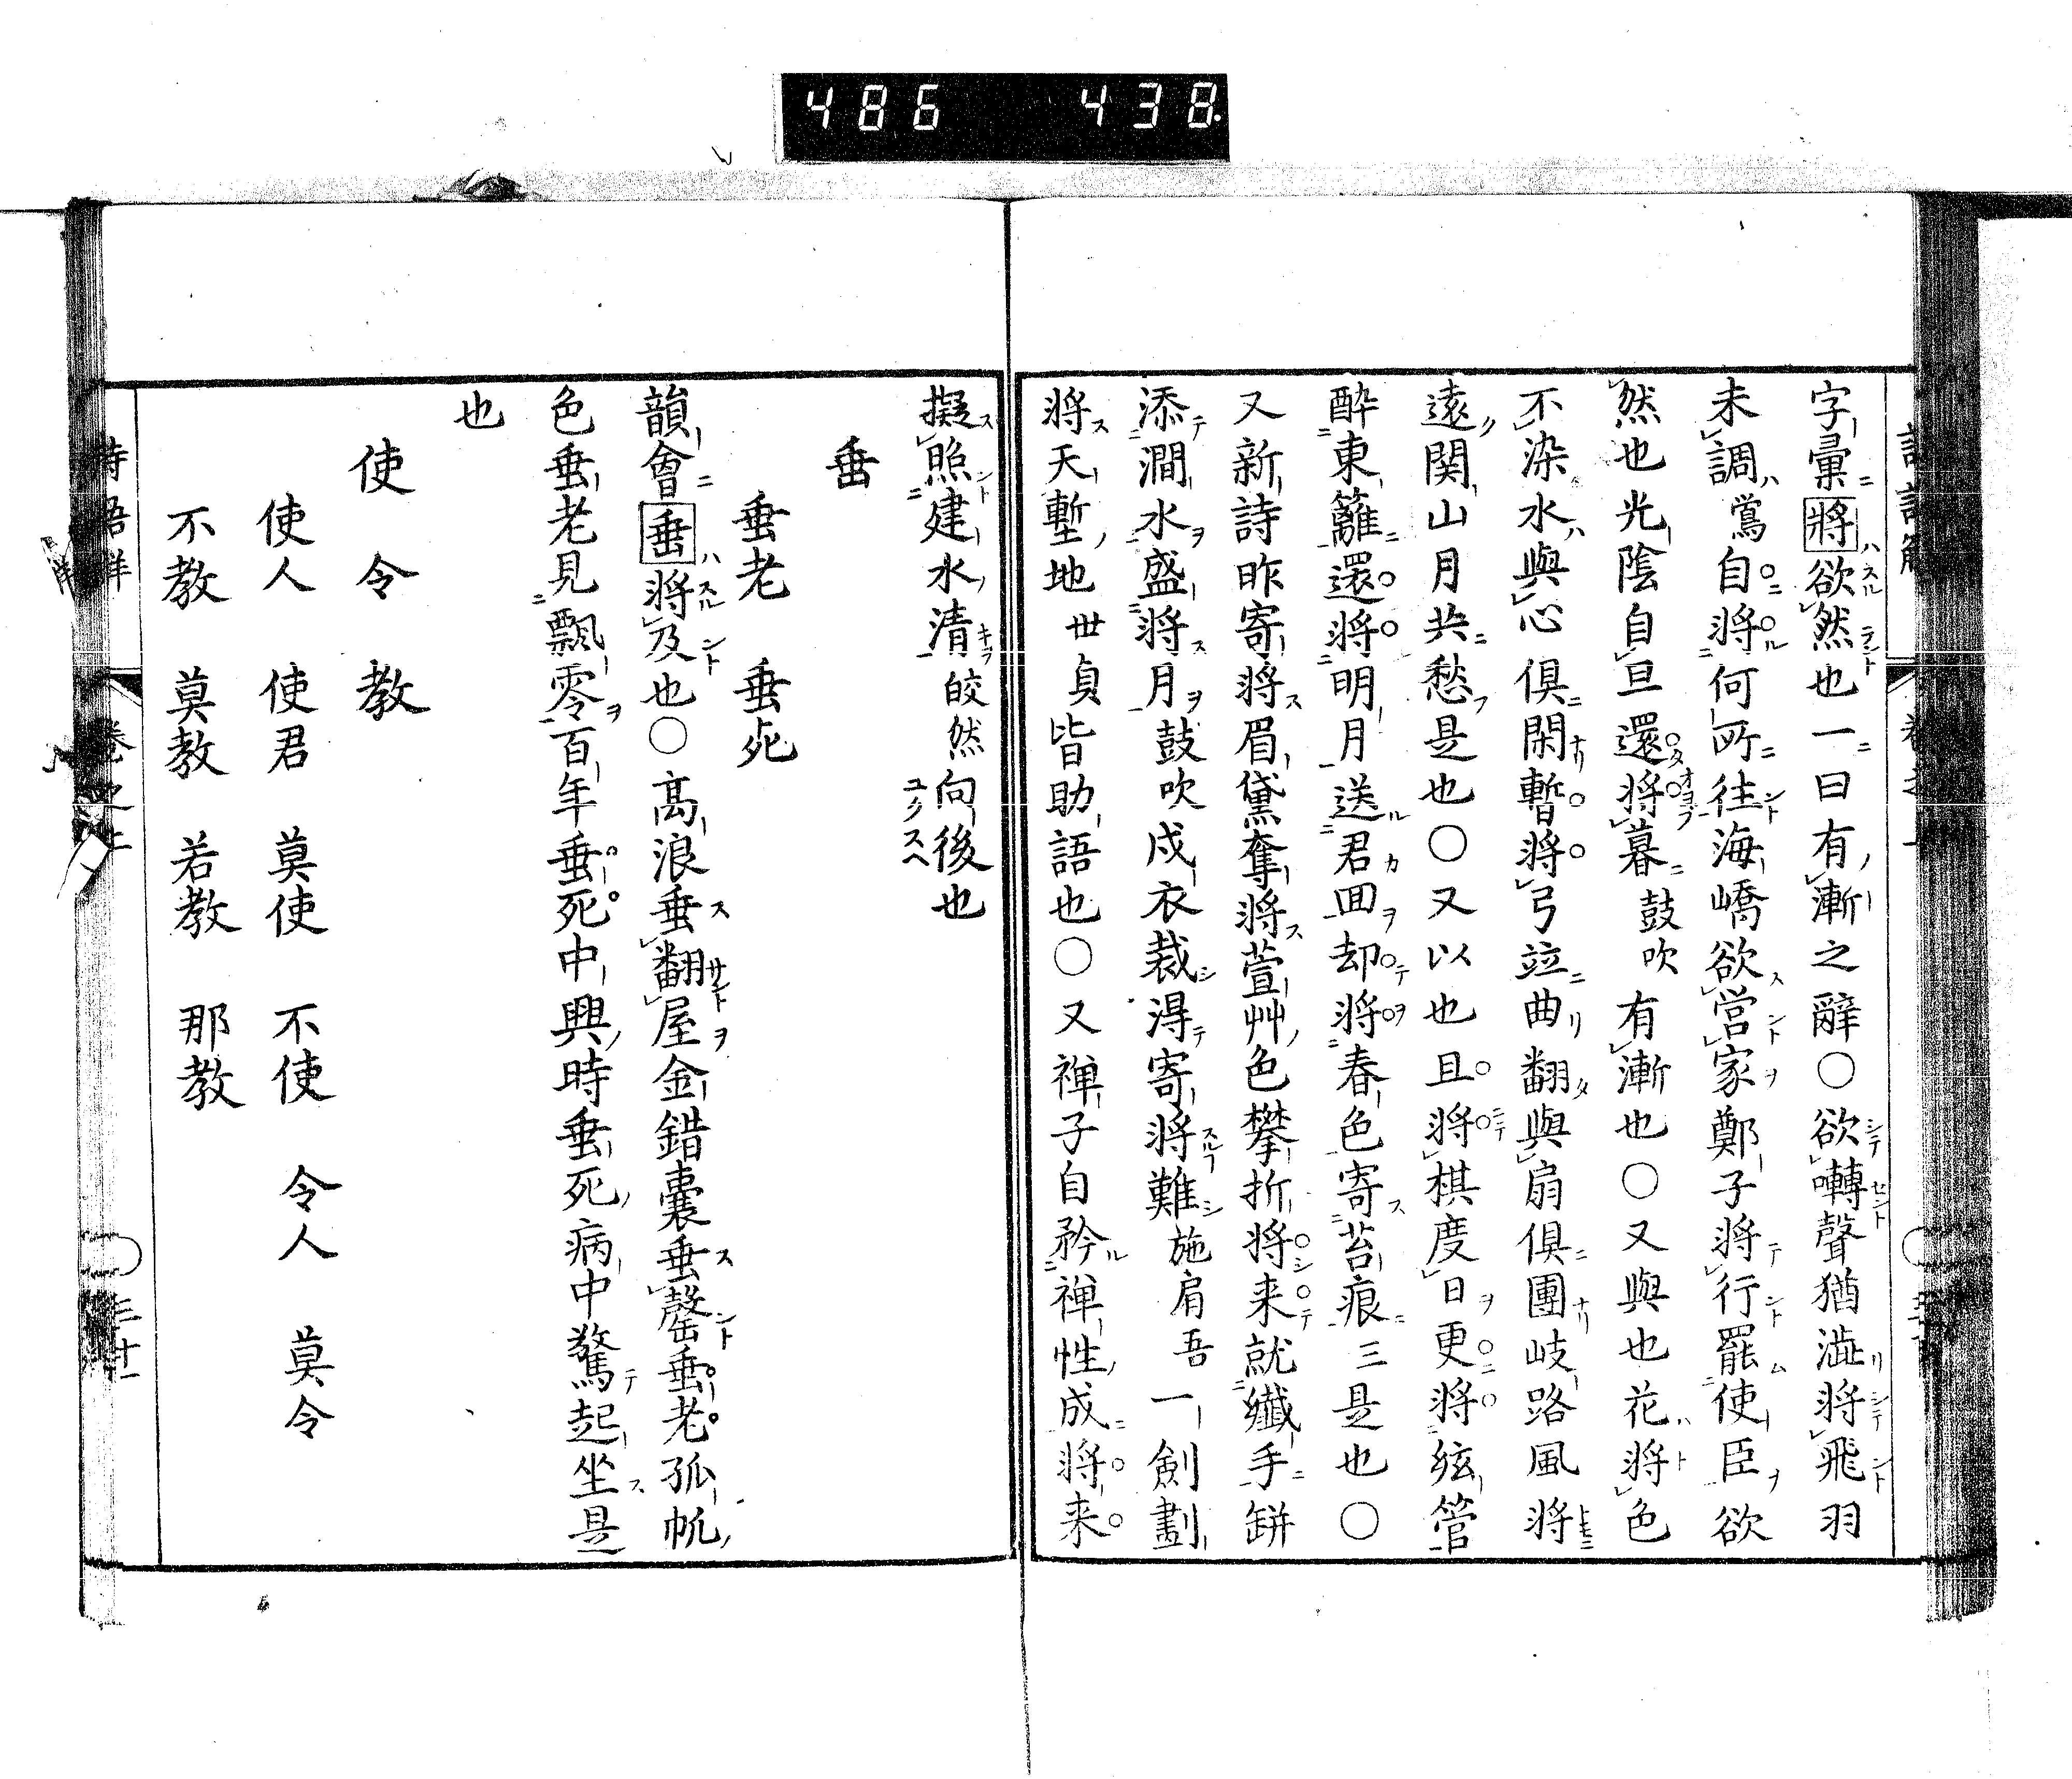 486 438
字彙將欲然也一曰有漸之辭〇欲囀聲猶澁將飛羽
未調鴬自將何所往海嶠欲営家鄭子將行罷使臣欲
然也光陰自旦還將暮鼓吹有漸也〇又與也花將色
不染水與心俱閑暫將弓竝曲翻與扇俱團岐路風將
遠関山月共愁是也〇又以也且將棋度日更將絃管
酔東籬還將明月送君回却將春色寄苔痕三是也〇
又新詩昨寄將眉黛奪將萱艸色攀折將来就纖手缾
添澗水盛將月鼓吹戍衣裁得寄將難施肩吾一劍劃
將天塹地世貞皆助語也〇又禅子自矜禅性成將来
擬照建水清皎然向後也
垂
垂老 垂死
韻會垂將及也〇髙浪垂翻屋金錯嚢垂罄垂老孤帆
色垂老見飄零百年垂死中興時垂死病中驚起坐是
也
使 令 教
使人 使君 莫使 不使 令人 莫令
不教 莫教 若教 那教
巻之上
三十一